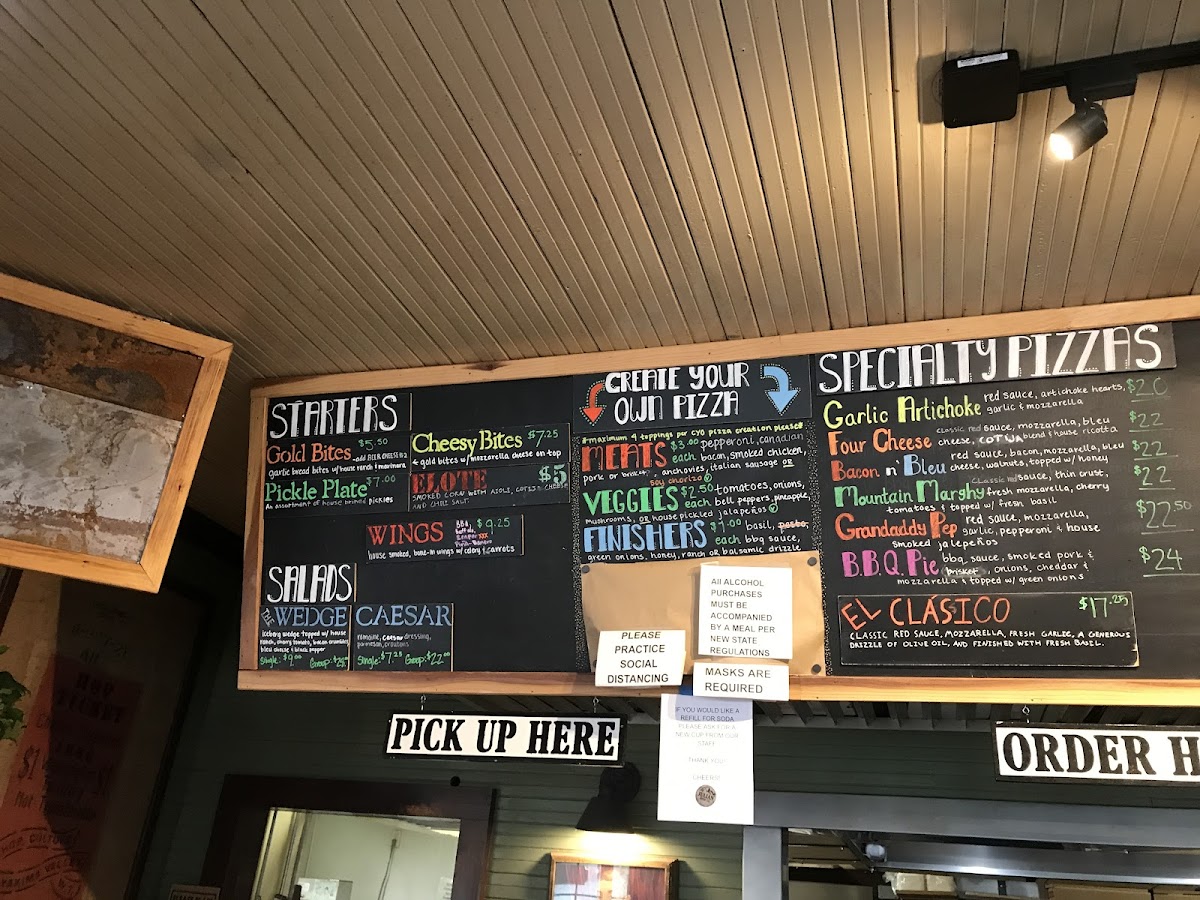 STARTERS
Gold Bites $5.50
-add BEER CHEESE $2
garlic bread bites w/house ranch & marinara
Pickle Plate $7.00
An assortment of house brined pickles
Cheesy Bites $7.25
4 gold bites w/mozzarella cheese on top
ELOTE $5
SMOKED CORN WITH AIOLI, COTIJA CHEESE
AND CHILI SALT.
WINGS $9.25
BBQ,
buffalo,
Reaper XXX
house smoked, bone-in wings w/celery & carrots
SALADS
THE WEDGE
iceberg wedge topped w/ house
ranch, cherry tomato, bacon crumbles,
bleu cheese & black pepper
Single: $9.00 Group:
CAESAR
romaine, caesar dressing,
parmesan, croutons
Single: $7.25 Group: $22.00
CREATE YOUR
OWN PIZZA
*maximum 4 toppings per CYO pizza creation please*
MEATS $3.00 each pepperoni, canadian
bacon, smoked chicken,
pork or brisket, anchovies, italian sausage or
soy chorizo
VEGGIES $2.50 each tomatoes, onions,
bell peppers, pineapple,
mushrooms, or house pickled jalapeños
FINISHERS $1.00 each basil, pesto,
bbq sauce,
green onions, honey, ranch or balsamic drizzle
SPECIALTY PIZZAS
Garlic Artichoke red sauce, artichoke hearts, $20
garlic & mozzarella
Four Cheese classic red sauce, mozzarella, bleu $22
cheese, COTIJA blend & house ricotta
Bacon n' Bleu red sauce, bacon, mozzarella, bleu $22
cheese, walnuts, topped w/ honey
Mountain Marghy classic red sauce, thin crust, $22
fresh mozzarella, cherry
tomatoes & topped w/ fresh basil
Grandaddy Pep red sauce, mozzarella, $22.50
garlic, pepperoni & house
smoked jalepeños
B.B.Q. Pie bbq sauce, smoked pork & $24
brisket, onions, cheddar &
mozzarella & topped w/ green onions
EL CLÁSICO $17.25
CLASSIC RED SAUCE, MOZZARELLA, FRESH GARLIC, A GENEROUS
DRIZZLE OF OLIVE OIL, AND FINISHED WITH FRESH BASIL.
All ALCOHOL
PURCHASES
MUST BE
ACCOMPANIED
BY A MEAL PER
NEW STATE
REGULATIONS
PLEASE
PRACTICE
SOCIAL
DISTANCING
MASKS ARE
REQUIRED
IF YOU WOULD LIKE A
REFILL FOR SODA
PLEASE ASK FOR A
NEW CUP FROM OUR
STAFF
THANK YOU!
CHEERS!
PICK UP HERE
ORDER H